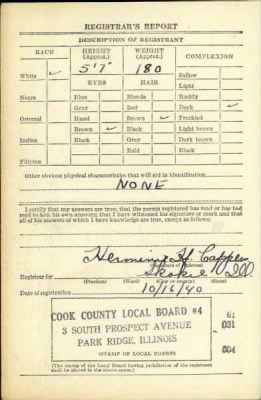 REGISTRAR'S REPORT
DESCRIPTION OF REGISTRANT
RACE HEIGHT (Approx.) WEIGHT (Approx.) COMPLEXION
White ✓ 5'7" 180 Sallow
EYES HAIR Light
Negro Blue Blonde Ruddy
Gray Red Dark ✓
Oriental Hazel Brown ✓ Freckled
Brown ✓ Black Light brown
Indian Black Gray Dark brown
Bald Black
Filipino
Other obvious physical characteristics that will aid in identification
NONE
I certify that my answers are true; that the person registered has read or has had
read to him his own answers; that I have witnessed his signature or mark and that
all of his answers of which I have knowledge are true, except as follows:
Hermina H.
Registrar for Skokie Ill
(Precinct) (Ward) (City or county) (State)
Date of registration 10/16/40
COOK COUNTY LOCAL BOARD #4 61
3 SOUTH PROSPECT AVENUE 031
PARK RIDGE, ILLINOIS
004
(STAMP OF LOCAL BOARD)
(The stamp of the Local Board having jurisdiction of the registrant
shall be placed in the above space.)